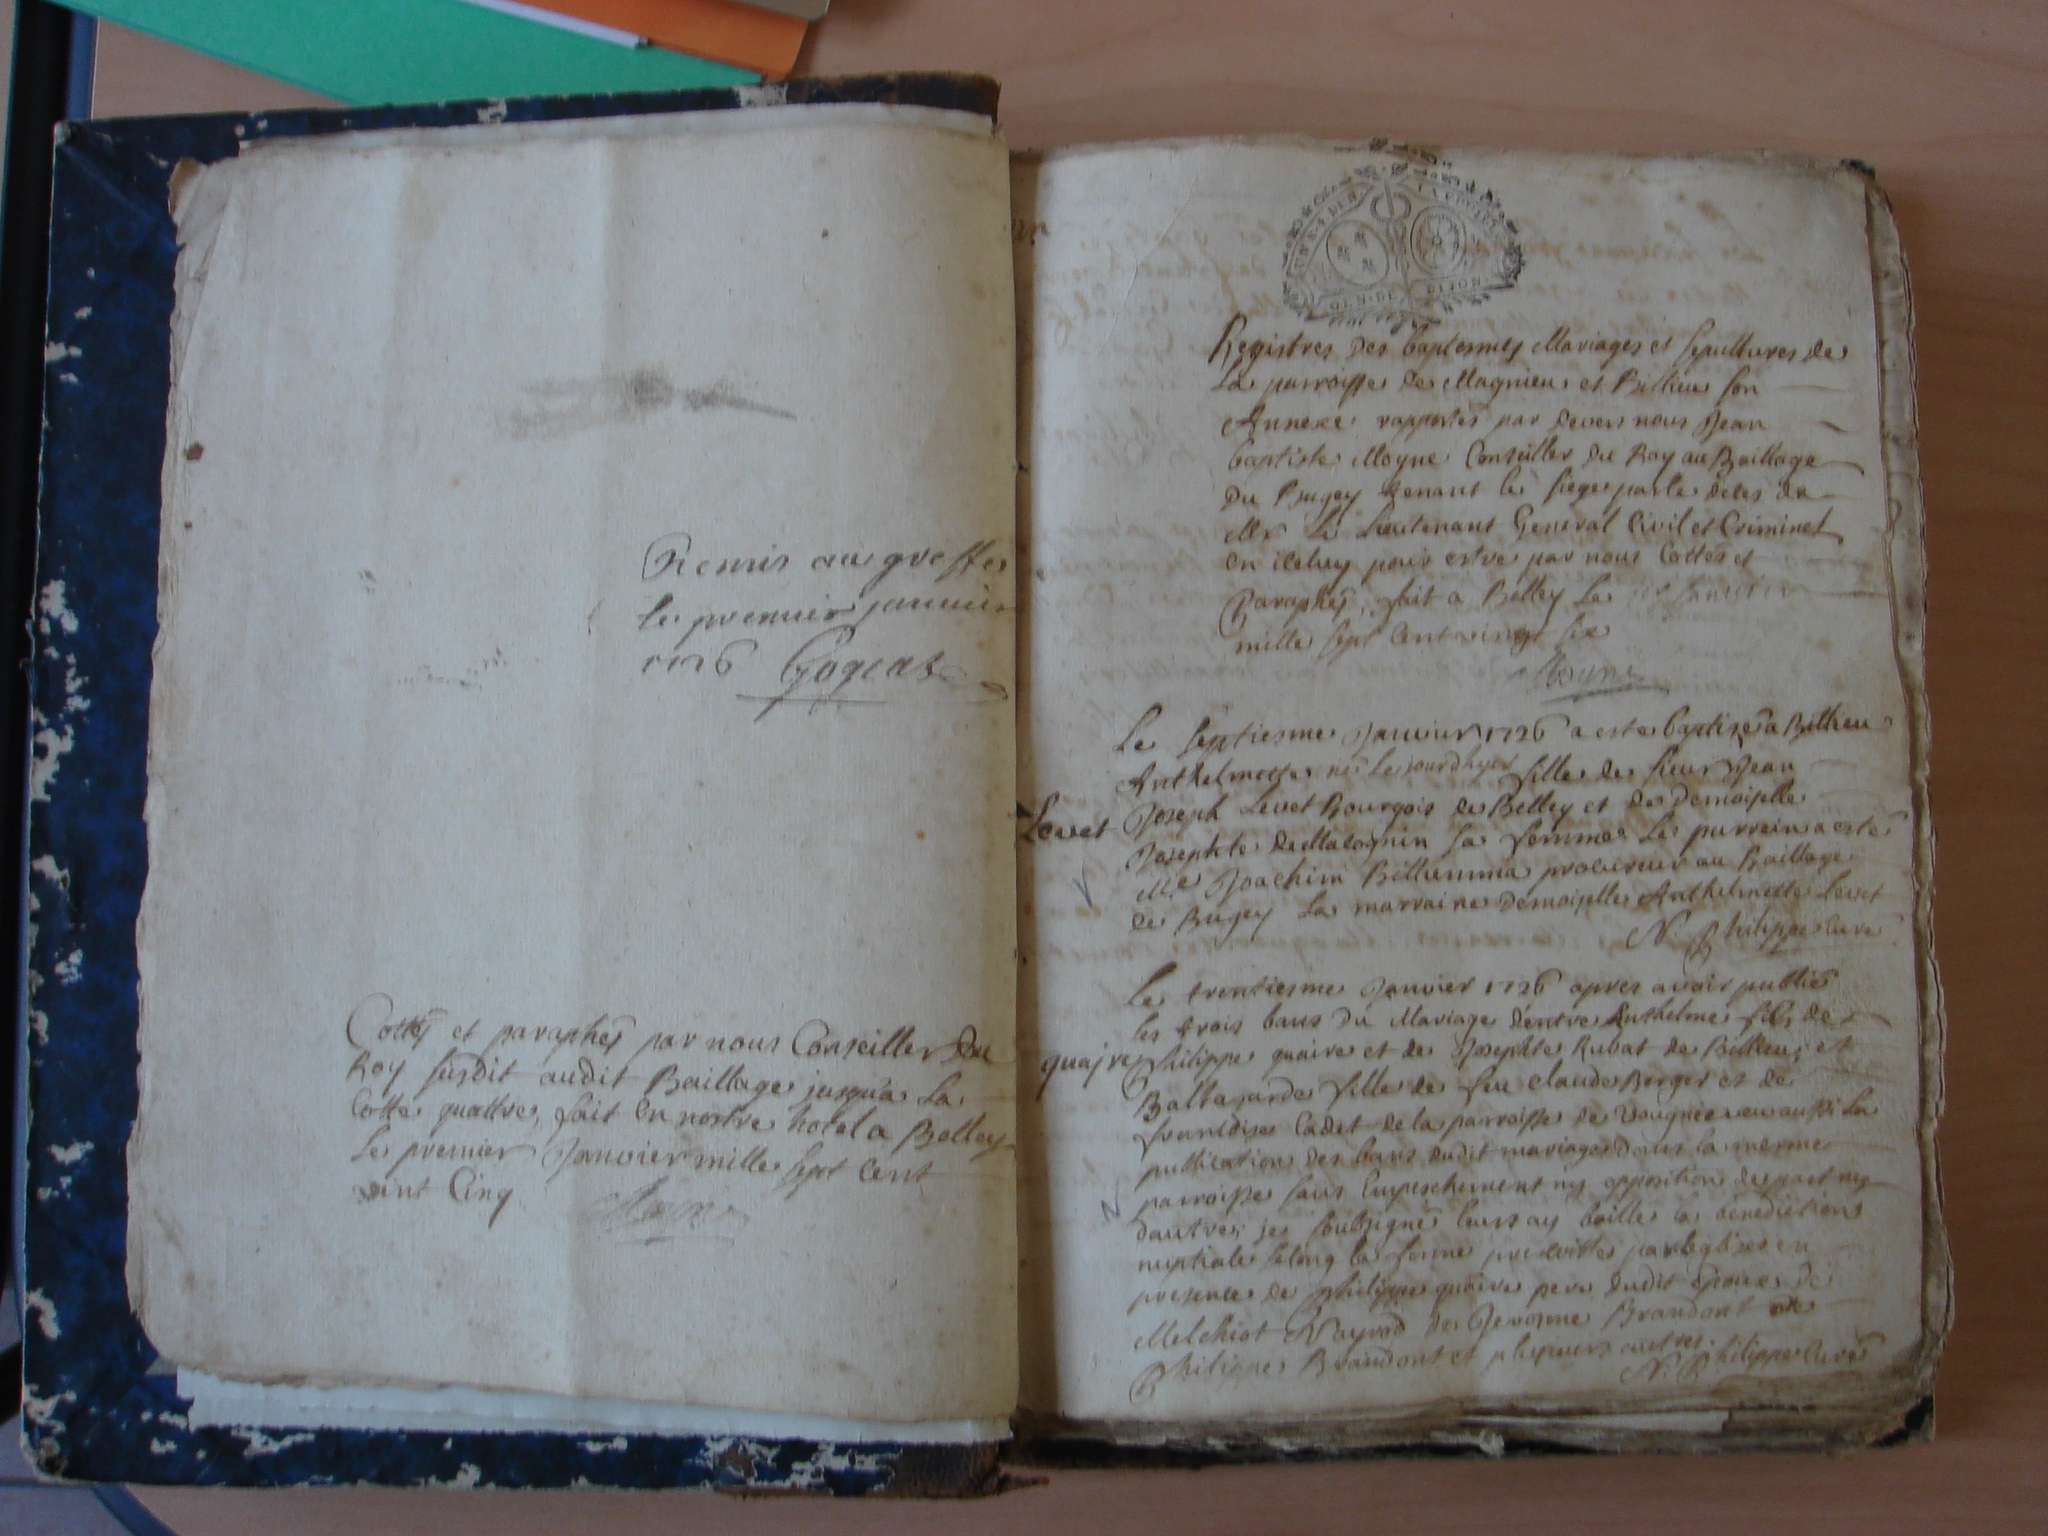 Remis au greffe
le premier janvier
1726 Gogeat
Cottés et paraphés par nous Conseiller Du
Roy susdit audit Baillage jusqua La
Cotte quattre, fait En nostre hotel a Belley
Le premier Janvier mille sept Cent
vint Cinq
Moyne
GEN. DE DIJON
Registres Des baptesmes Mariages et sepultures de
La parroisse de Magnieu et Billieu son
Annexe rapportés par devers nous Jean
baptiste Moyne Conseiller Du Roy au Baillage
Du Bugey tenant le siege par le deces de
Mr Le Lieutenant General Civil et Criminel
En iceluy pour estre par nous Cottés et
Paraphés, fait a Belley Le Janvier
mille sept Cent vingt six
Moyne
Le septiesme Janvier 1726 a este baptizé a Billieu
Anthelmette née Le jourdhyer fille de sieur Jean
Levet
Joseph Levet Bourgois de Belley et de Demoiselle
Josephte De Malognin sa femme Le parrein a esté
Me Joachim Billiemma procureur au Baillage
de Bugey La marraine Demoiselle Anthelmette Levet
N. Philippe Curé
Le trentiesme Janvier 1726 apres avoir publié
les trois bans du Mariage d'entre Anthelme fils de
quaire
Philippe quaire et de Josephte Rubat de Billieu; et
Baltazarde fille de feu Claude Berger et de
francoise Cadet de la parroisse de Vougnieu eu aussi La
publication des bans dudit mariage dans la mesme
parroisse sans Empeschement ny opposition de part ny
dautre; je soubsigné leurs ay baillé la benediction
nuptiale selong la forme prescritte par leglise en
presence de Philippe quaire pere dudit Epoux de
Melchiot Nayrod de Jerosme Brandont de
Philippe Brandont et plusieurs autres.
N. Philippe Curé